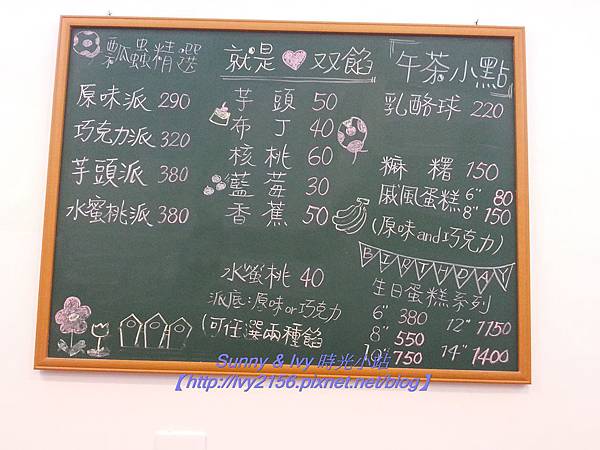 瓢蟲精選
原味派 290
巧克力派 320
芋頭派 380
水蜜桃派 380
就是 双餡
芋頭 50
布丁 40
核桃 60
藍莓 30
香蕉 50
水蜜桃 40
派底:原味or巧克力
(可任選兩種餡
「午茶小點」
乳酪球 220
麻糬 150
戚風蛋糕 6" 80
8" 150
(原味and巧克力)
BIRTHDAY
生日蛋糕系列
6" 380 12" 1150
8" 550
10" 750 14" 1400
Sunny & Ivy 時光小站
【http://ivy2156.pixnet.net/blog】